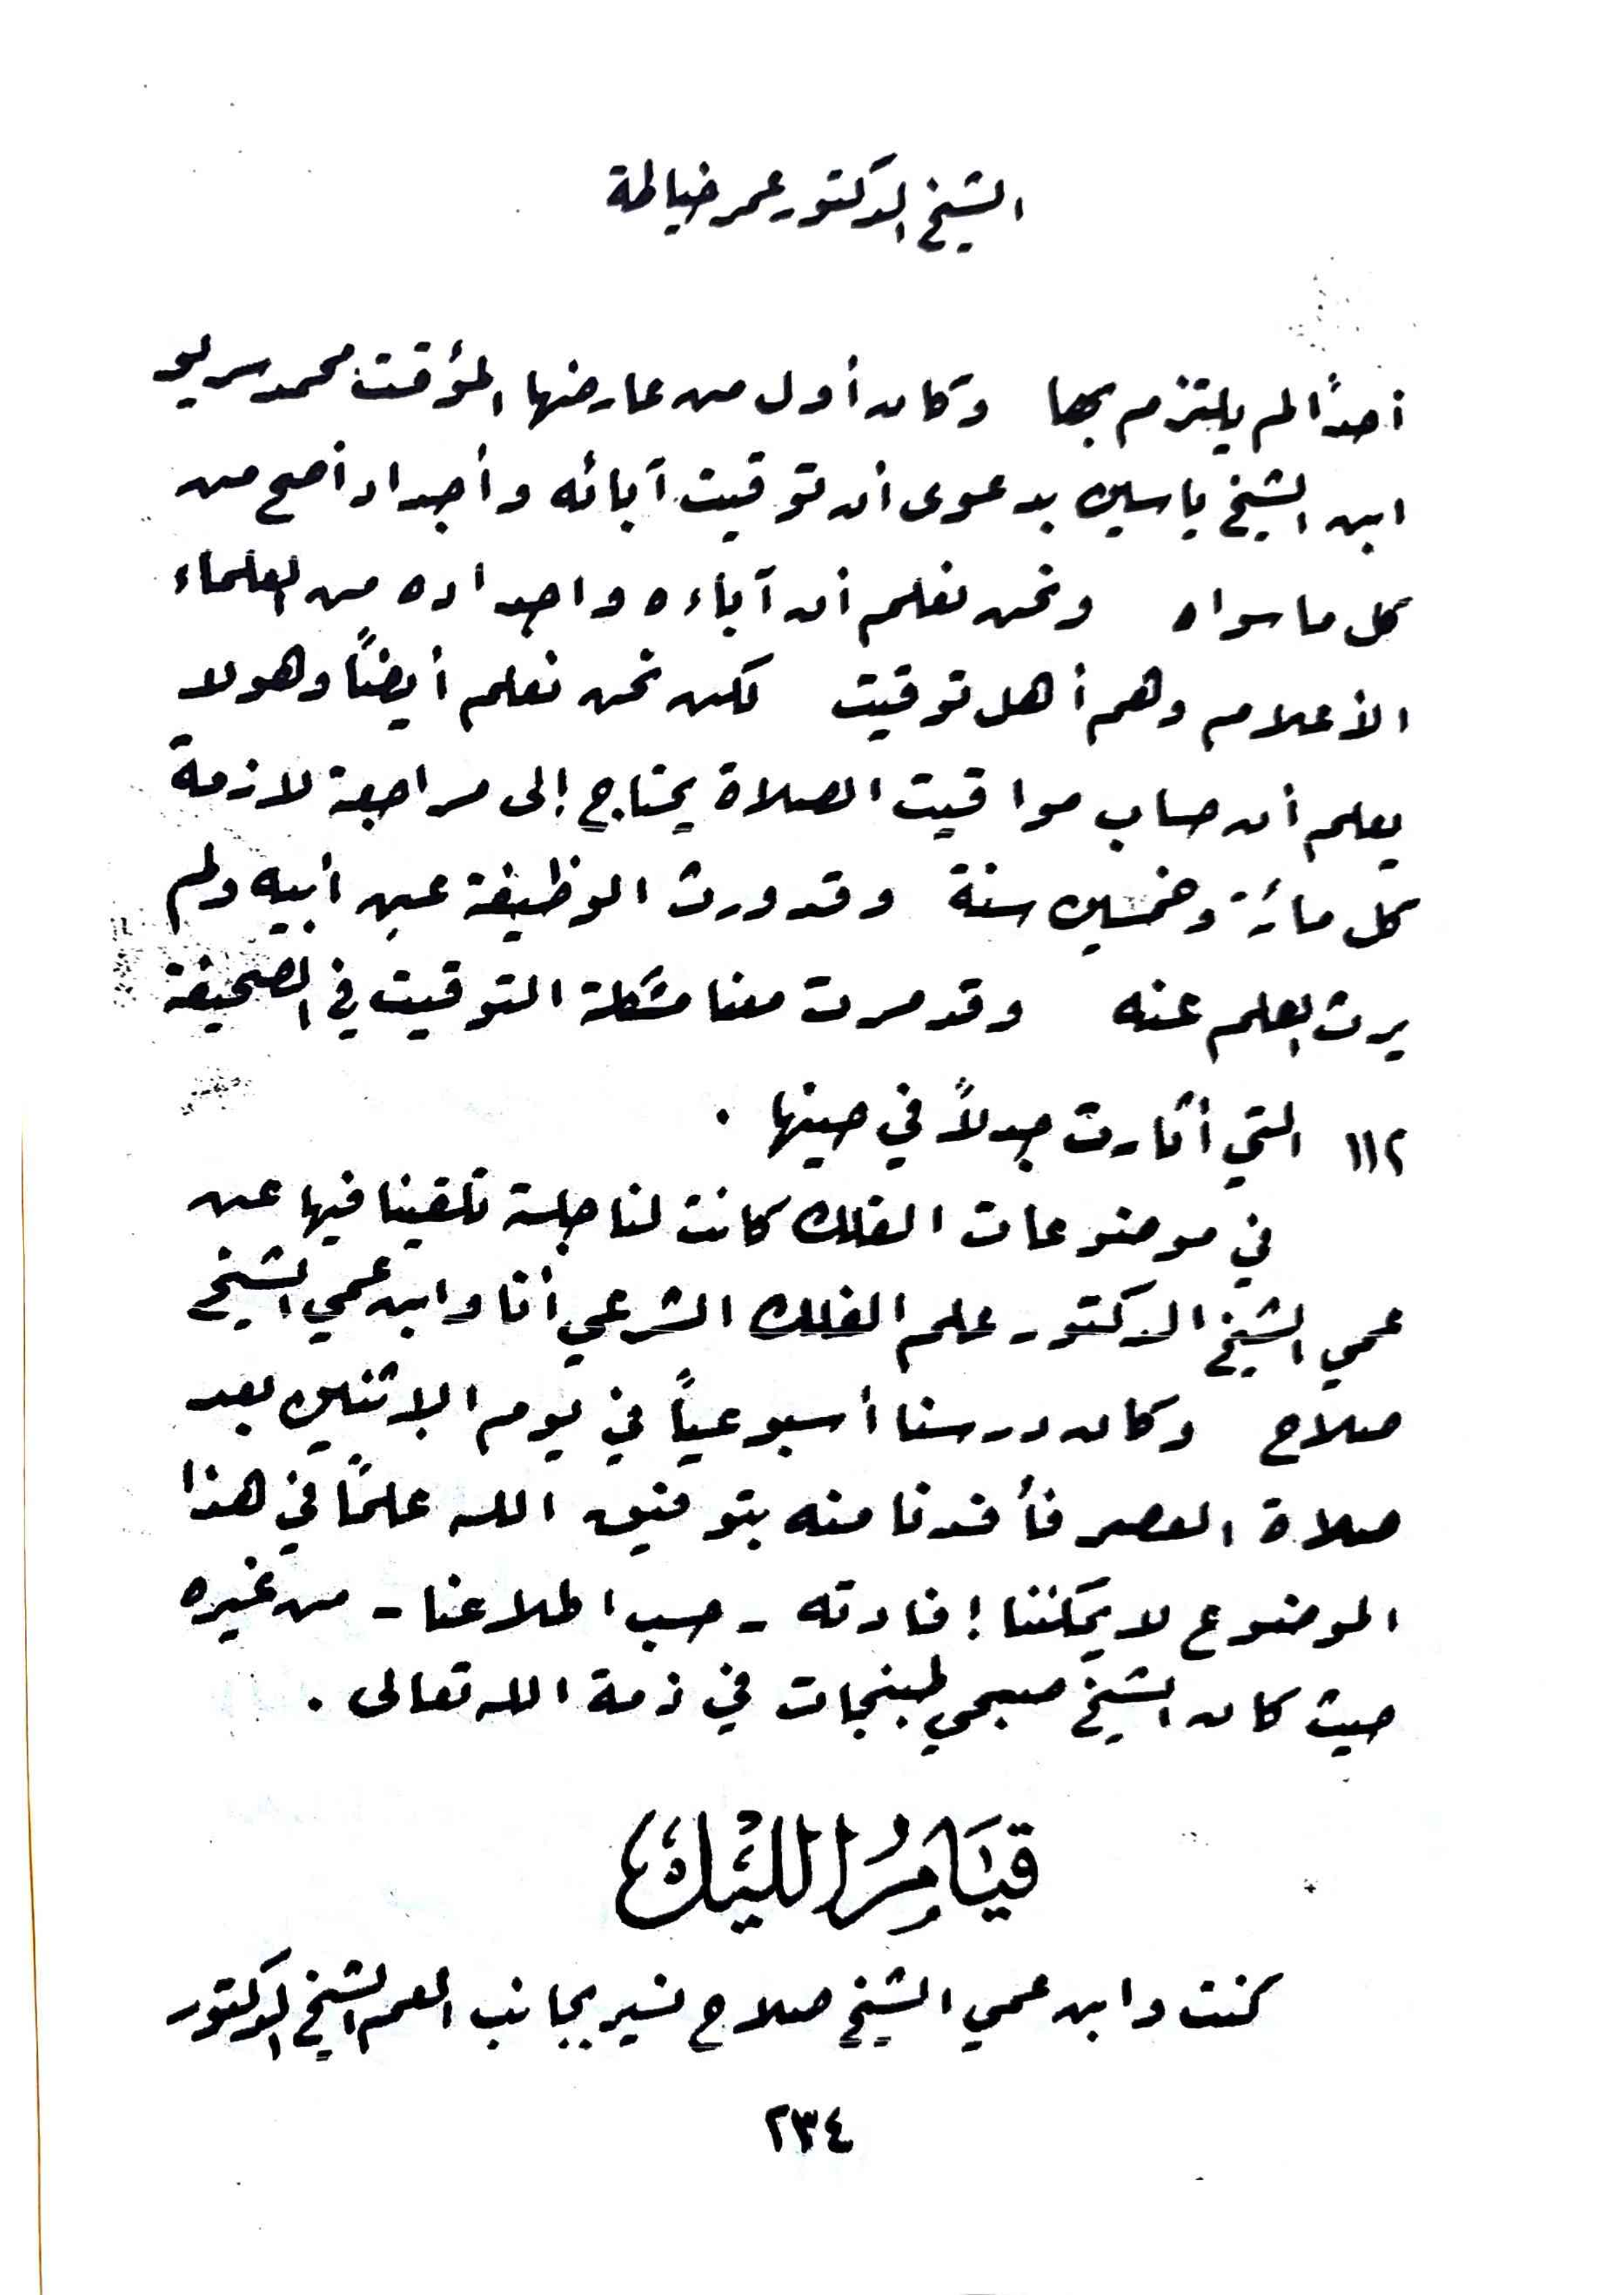 الشيخ الدكتور عمر خياطة
أحداً لم يلتزم بها وكان أول من عارضها المؤقت محمد سريو
ابن الشيخ ياسين بدعوى أن توقيت آبائه وأجداد أصح من
كل ما سواه ونحن نعلم أن آباءه واجداده من العلماء
الأعلام وهم أهل توقيت لكن نحن نعلم أيضاً وهو لا
يعلم أن حساب مواقيت الصلاة يحتاج إلى مراجعة لازمة
كل مائة وخمسين سنة وقد ورث الوظيفة عن أبيه ولم
يرث العلم عنه وقد مرت معنا مشكلة التوقيت في الصحيفة
١١٢ التي أثارت جدلاً في حينها .
في موضوعات الفلك كانت لنا جلسة تلقينا فيها عن
عمي الشيخ الدكتور علم الفلك الشرعي أنا وابن عمي الشيخ
صلاح وكان درسنا أسبوعياً في يوم الاثنين بعد
صلاة العصر فأفدنا منه بتوفيق الله علماً في هذا
الموضوع لا يمكننا إفادته - حسب اطلاعنا - من غيره
حيث كان الشيخ صبحي طبنجات في ذمة الله تعالى .
قِيَامُ اللَّيْل
كنت وابن عمي الشيخ صلاح نسير بجانب العم الشيخ الدكتور
٢٣٤